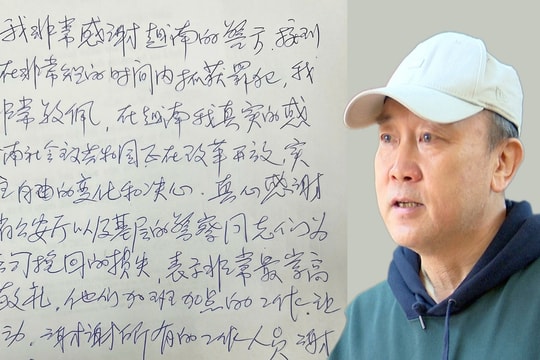 我非常感谢越南的警方 接到
在非常短的时间内抓获罪犯,我
非常敬佩,在越南我真实的感
南社会主义共和国正在改革开放,实
自由的变化和决心.真心感谢
公安厅以及基层的警察同志们为
公司挽回的损失,表示非常最崇高
敬礼,他们加班加点的工作.让
动,谢谢所有的工作人员 谢